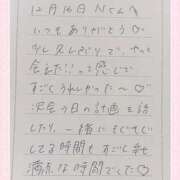 12月16日 Nくん
いつもありがとう♡
少し久しぶりで、やっと
会えた!!って感じで
すごくうれしかった〜♡
次会う日の計画を話
したり、一緒に
してる時間もすごく
満点な時間でした♡